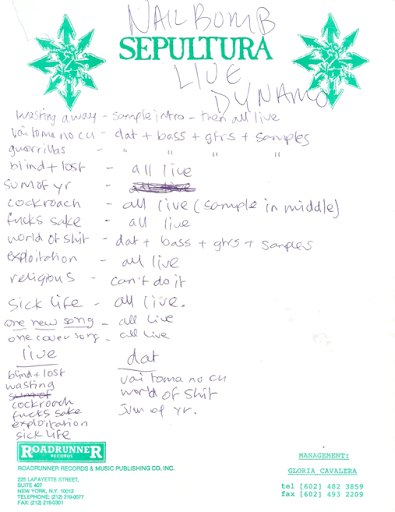 NAILBOMB
SEPULTURA
LIVE
DYNAMO
wasting away - sample intro - then all live
vai toma no cu - dat + bass + gtrs + samples
guerrillas - " " "
blind + lost - all live
sum of yr -
cockroach - all live (sample in middle)
fucks sake - all live
world of shit - dat + bass + gtrs + samples
exploitation - all live
religious - can't do it
sick life - all live.
one new song - all live
one cover song - all live
live dat
blind + lost
wasting
sum of
cockroach
fucks sake
exploitation
sick life
vai toma no cu
world of shit
sum of yr.
ROADRUNNER
RECORDS
ROADRUNNER RECORDS & MUSIC PUBLISHING CO. INC.
225 LAFAYETTE STREET,
SUITE 407
NEW YORK, N.Y. 10012
TELEPHONE: (212) 219-0077
FAX: (212) 219-0301
MANAGEMENT:
GLORIA CAVALERA
tel [602] 482 3859
fax [602] 493 2209